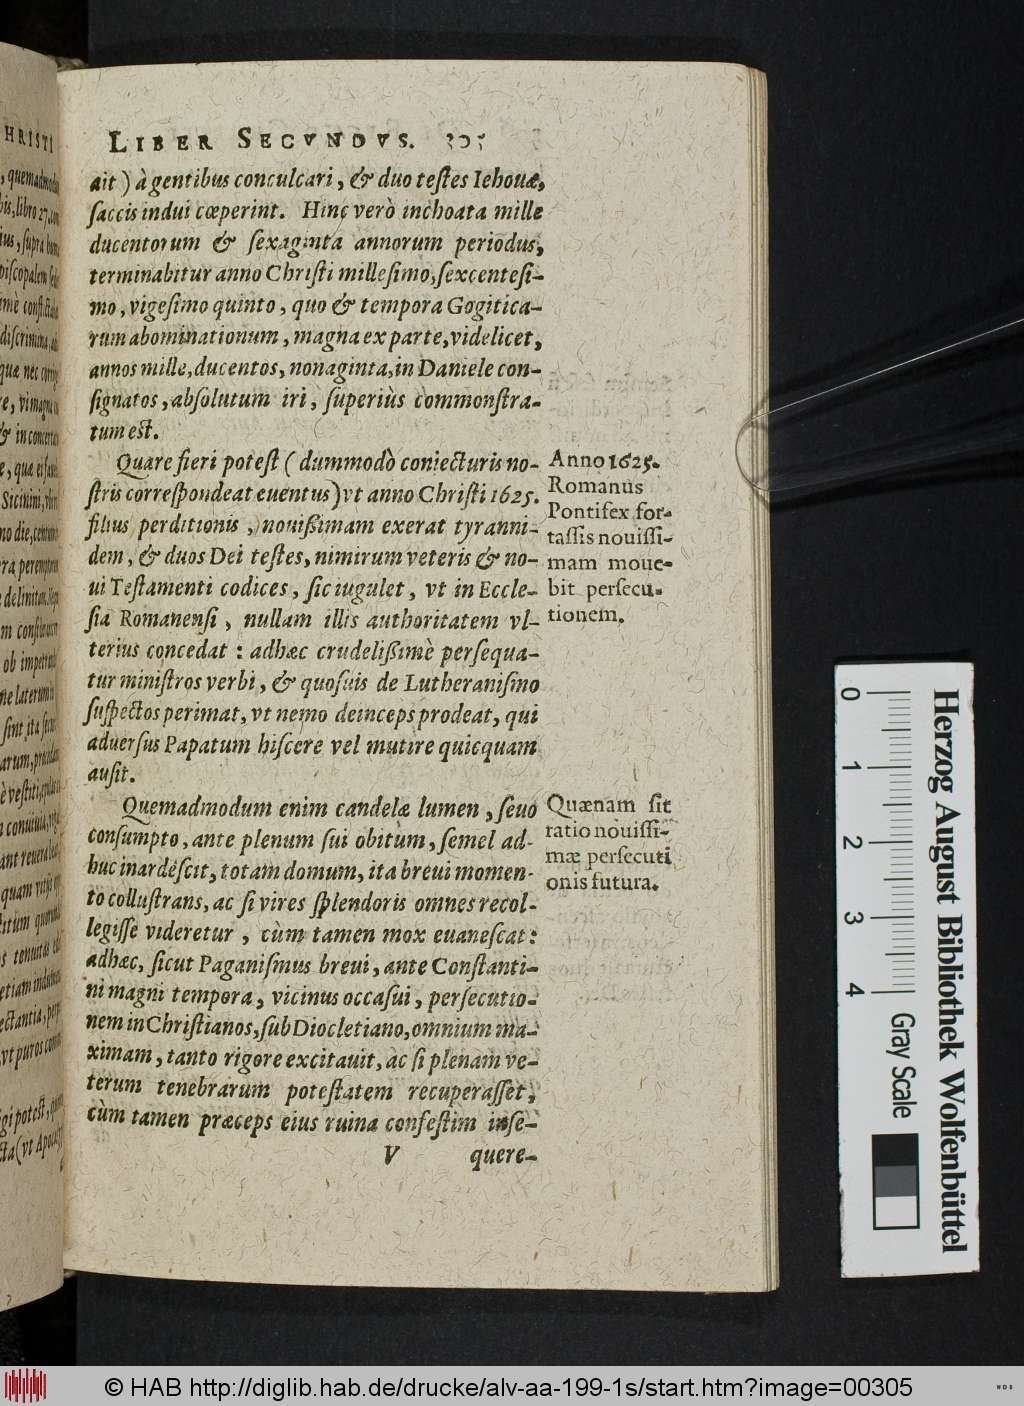 LIBER SECVNDVS. 305
ait) à gentibus conculcari, & duo testes Iehouæ,
saccis indui cœperint. Hinc verò inchoata mille
ducentorum & sexaginta annorum periodus,
terminabitur anno Christi millesimo, sexcentesi-
mo, vigesimo quinto, quo & tempora Gogitica-
rum abominationum, magna ex parte, videlicet,
annos mille, ducentos, nonaginta, in Daniele con-
signatos, absolutum iri, superiùs commonstra-
tum est.
Quare fieri potest (dummodò coniecturis no-
stris correspondeat euentus) vt anno Christi 1625.
filius perditionis, nouißimam exerat tyranni-
dem, & duos Dei testes, nimirum veteris & no-
ui Testamenti codices, sic iugulet, vt in Eccle-
sia Romanensi, nullam illis authoritatem vl-
terius concedat: adhæc crudelißimè persequa-
tur ministros verbi, & quosuis de Lutheranismo
suspectos perimat, vt nemo deinceps prodeat, qui
aduersus Papatum hiscere vel mutire quicquam
ausit.
Anno 1625.
Romanus
Pontifex for-
tassis nouissi-
mam moue-
bit persecu-
tionem.
Quemadmodum enim candelæ lumen, seuo
consumpto, ante plenum sui obitum, semel ad-
huc inardescit, totam domum, ita breui momen-
to collustrans, ac si vires splendoris omnes recol-
legisse videretur, cùm tamen mox euanescat:
adhæc, sicut Paganismus breui, ante Constanti-
ni magni tempora, vicinus occasui, persecutio-
nem in Christianos, sub Diocletiano, omnium ma-
ximam, tanto rigore excitauit, ac si plenam ve-
terum tenebrarum potestatem recuperasset,
cùm tamen præceps eius ruina confestim inse-
Quænam sit
ratio nouissi-
mæ persecuti
onis futura.
V quere-
HRISTI
, quemadmodum
Sicinini,
vt puros
igi potest,
(vt Apoc.
Herzog August Bibliothek Wolfenbüttel
0 1 2 3 4 Gray Scale
© HAB http://diglib.hab.de/drucke/alv-aa-199-1s/start.htm?image=00305